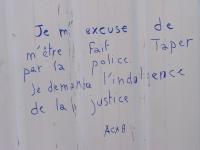 Je m'excuse de
m'être fait Taper
par la police.
Je demande l'indulgence
de la justice
ACAB